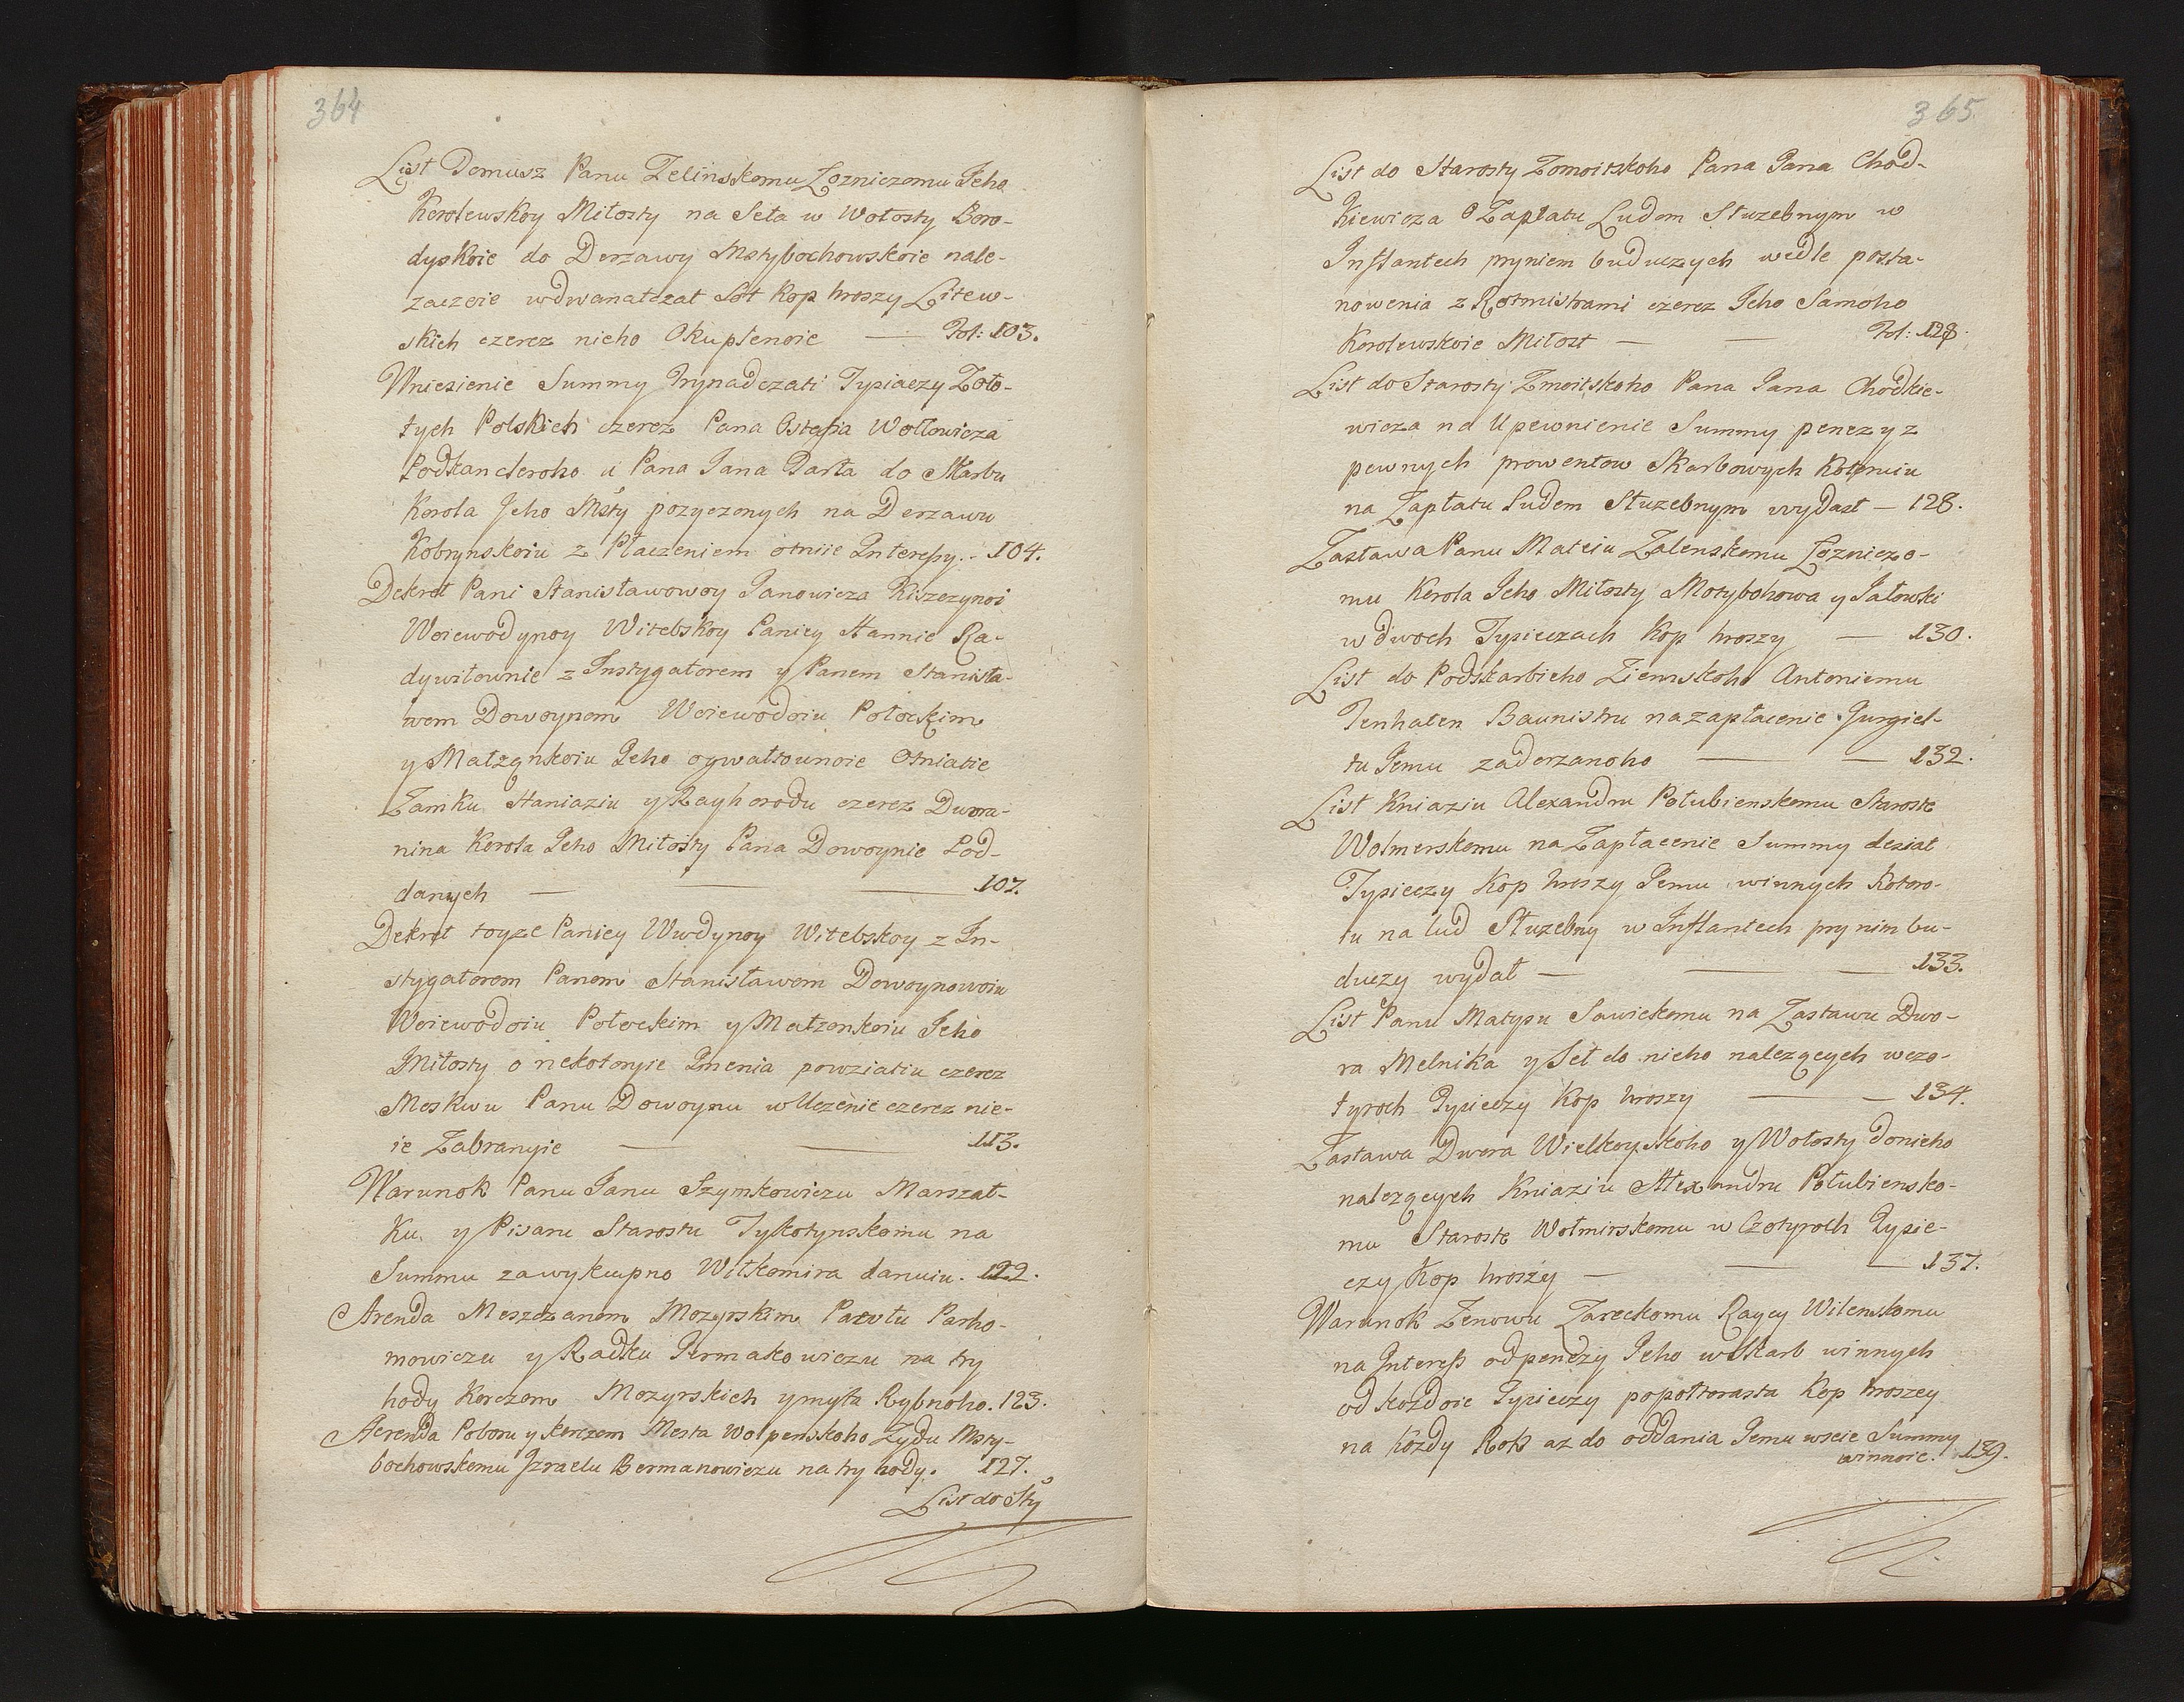 364
List Domusz Panu Zelinskomu Lozniczomu Jeho
Korolewskoy Miłosty na Seła w Wołosty Boro-
dyskoie do Derzawy Mstybochowskoie nale-
zaczoie wdwanatczat Sot kop hroszy Litew-
skich czerez nieho Okuplenoie — Fol: 103.
Wniesienie Summy Trynadczati Tysiaczy Zoło-
tych Polskich czerez Pana Ostafia Wołłowicza
Podkancleroho u Pana Jana Darła do Skarbu
Korola Jeho Msty pozyczonych na Derzawu
Kobrynskoiu z Płaczeniem otniie Interessy. - 104.
Dekret Pani Stanisławowoy Janowicza Kiszczynoi
Woiewodynoy Witebskoy Paniey Hannie Ra-
dywiłownie z Instygatorem y Panem Stanisła-
wom Dowoynom Woiewodoiu Połockim
y Małzonkoiu Jeho ogwałtounoie Otniatie
Zamku Haniaziu y Rayhorodu czerez Dwora-
nina Korola Jeho Miłosty Pana Dowoynie Pod-
danych — — — 107.
Dekret toyze Paniey Wwdynoy Witebskoy z In-
stygatorom Panom Stanisławom Dowoynowoiu
Woiewodoiu Połockim y Małzonkoiu Jeho
Miłosty o nekotoryie Imenia powziatiu czerez
Moskwu Panu Dowoynu wUczenie czerez nie-
ie Zabranyie — — 113.
Warunok Panu Janu Szymkowiczu Marszał-
ku y Pisaru Starostu Tykotynskomu na
Summu zawykupno Wiłkomira danuiu. 122.
Arenda Meszczanom Mozyrskim Pawłu Parho-
mowiczu y Radku Jermakowiczu na try
hody Korczom Mozyrskich ymyta Rybnoho. 123.
Aerenda Poboru y korczom Mesta Wolpenskoho Zydu Msty-
bochowskomu Izraelu Bermanowiczu na try hody. 127.
List do Sty
365.
List do Starosty Zomoitskoho Pana Jana Chod-
kiewicza O Zapłatu Ludem Słuzebnym w
Inflantech pryniem buduczych wedle posta-
nowenia z Rotmistrami czerez Jeho Samoho
Korolewskoie Miłost — — Fol: 128.
List do Starosty Zmoitskoho Pana Jana Chodkie-
wicza na Upewnienie Summy penezy z
pewnych prowentow Skarbowych kotoruiu
na Zapłatu Ludem Słuzebnym wydast — 128.
Zastawa Panu Mateiu Zalenskomu Lozniczo-
mu Korola Jeho Miłosty Mstybohowa y Jałowki
w dwoch Tysieczach kop hroszy — 130.
List do Podskarbieho Ziemskoho Antoniemu
Tenhalen Baunistru nazapłacenie Jurgiel-
tu Jemu zaderzanoho — — 132.
List Kniaziu Alexandru Połubienskomu Staroste
Wolmerskomu na Zapłacenie Summy desiat
Tysieczy kop hroszy Jemu winnych kotoro-
iu na lud Słuzebny w Inflantech pry nim bu-
duczy wydał — — — 133.
List Panu Matysu Sawickomu na Zastawu Dwo-
ra Melnika y Seł do nieho nalezqcych wczo-
tyroch Tysieczy kop hroszy — — 134.
Zastawa Dwora Wielkoyskoho y Wołosty donieho
nalezqcych Kniaziu Alexandru Połubiensko-
mu Staroste Wolmirskomu w Czotyroch Tysie-
czy kop hroszy — — — 137.
Warunok Zenowu Zareckomu Raycy Wilenskomu
na Interess odpenezy Jeho w Skarb winnych
od kozdoie Tysieczy popołtorasta kop hroszey
na kozdy Rok az do oddania Jemu wseie Summy
winnoie. 139.